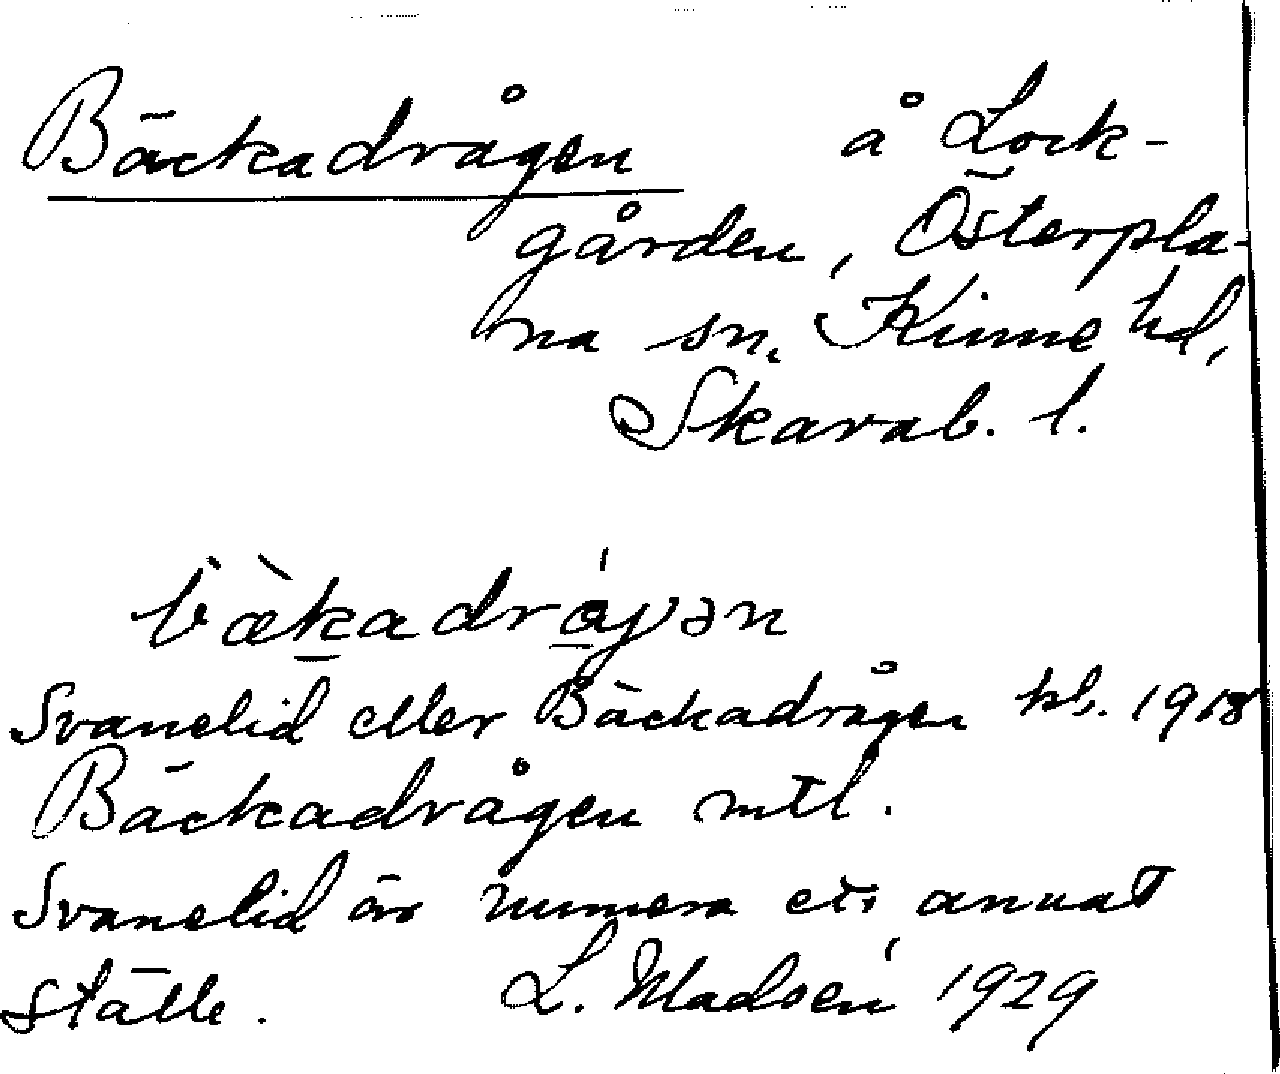 Bäckadrågen å Lock-
gården, Österpla-
na sn, Kinne hd,
Skarab. l.
Svanelid eller Bäckadrågen kb. 1918
Bäckadrågen mtl.
Svanelid är numera ett annat
ställe. L. Madsén 1929